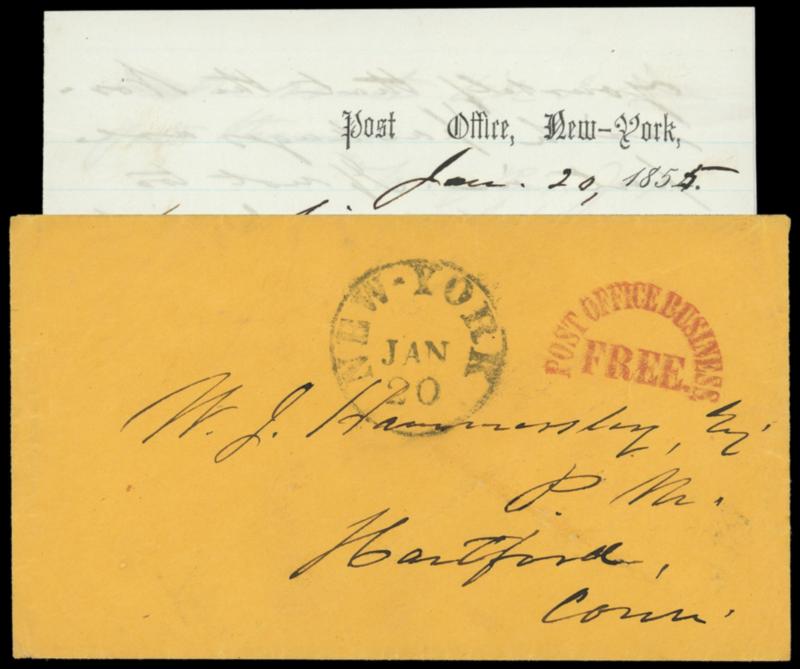 Post Office, New-York,
Jan. 20, 1855.
NEW-YORK
JAN
20
POST OFFICE BUSINESS
FREE.
W. J. Hammersley, Esq
P. M.
Hartford,
Conn.